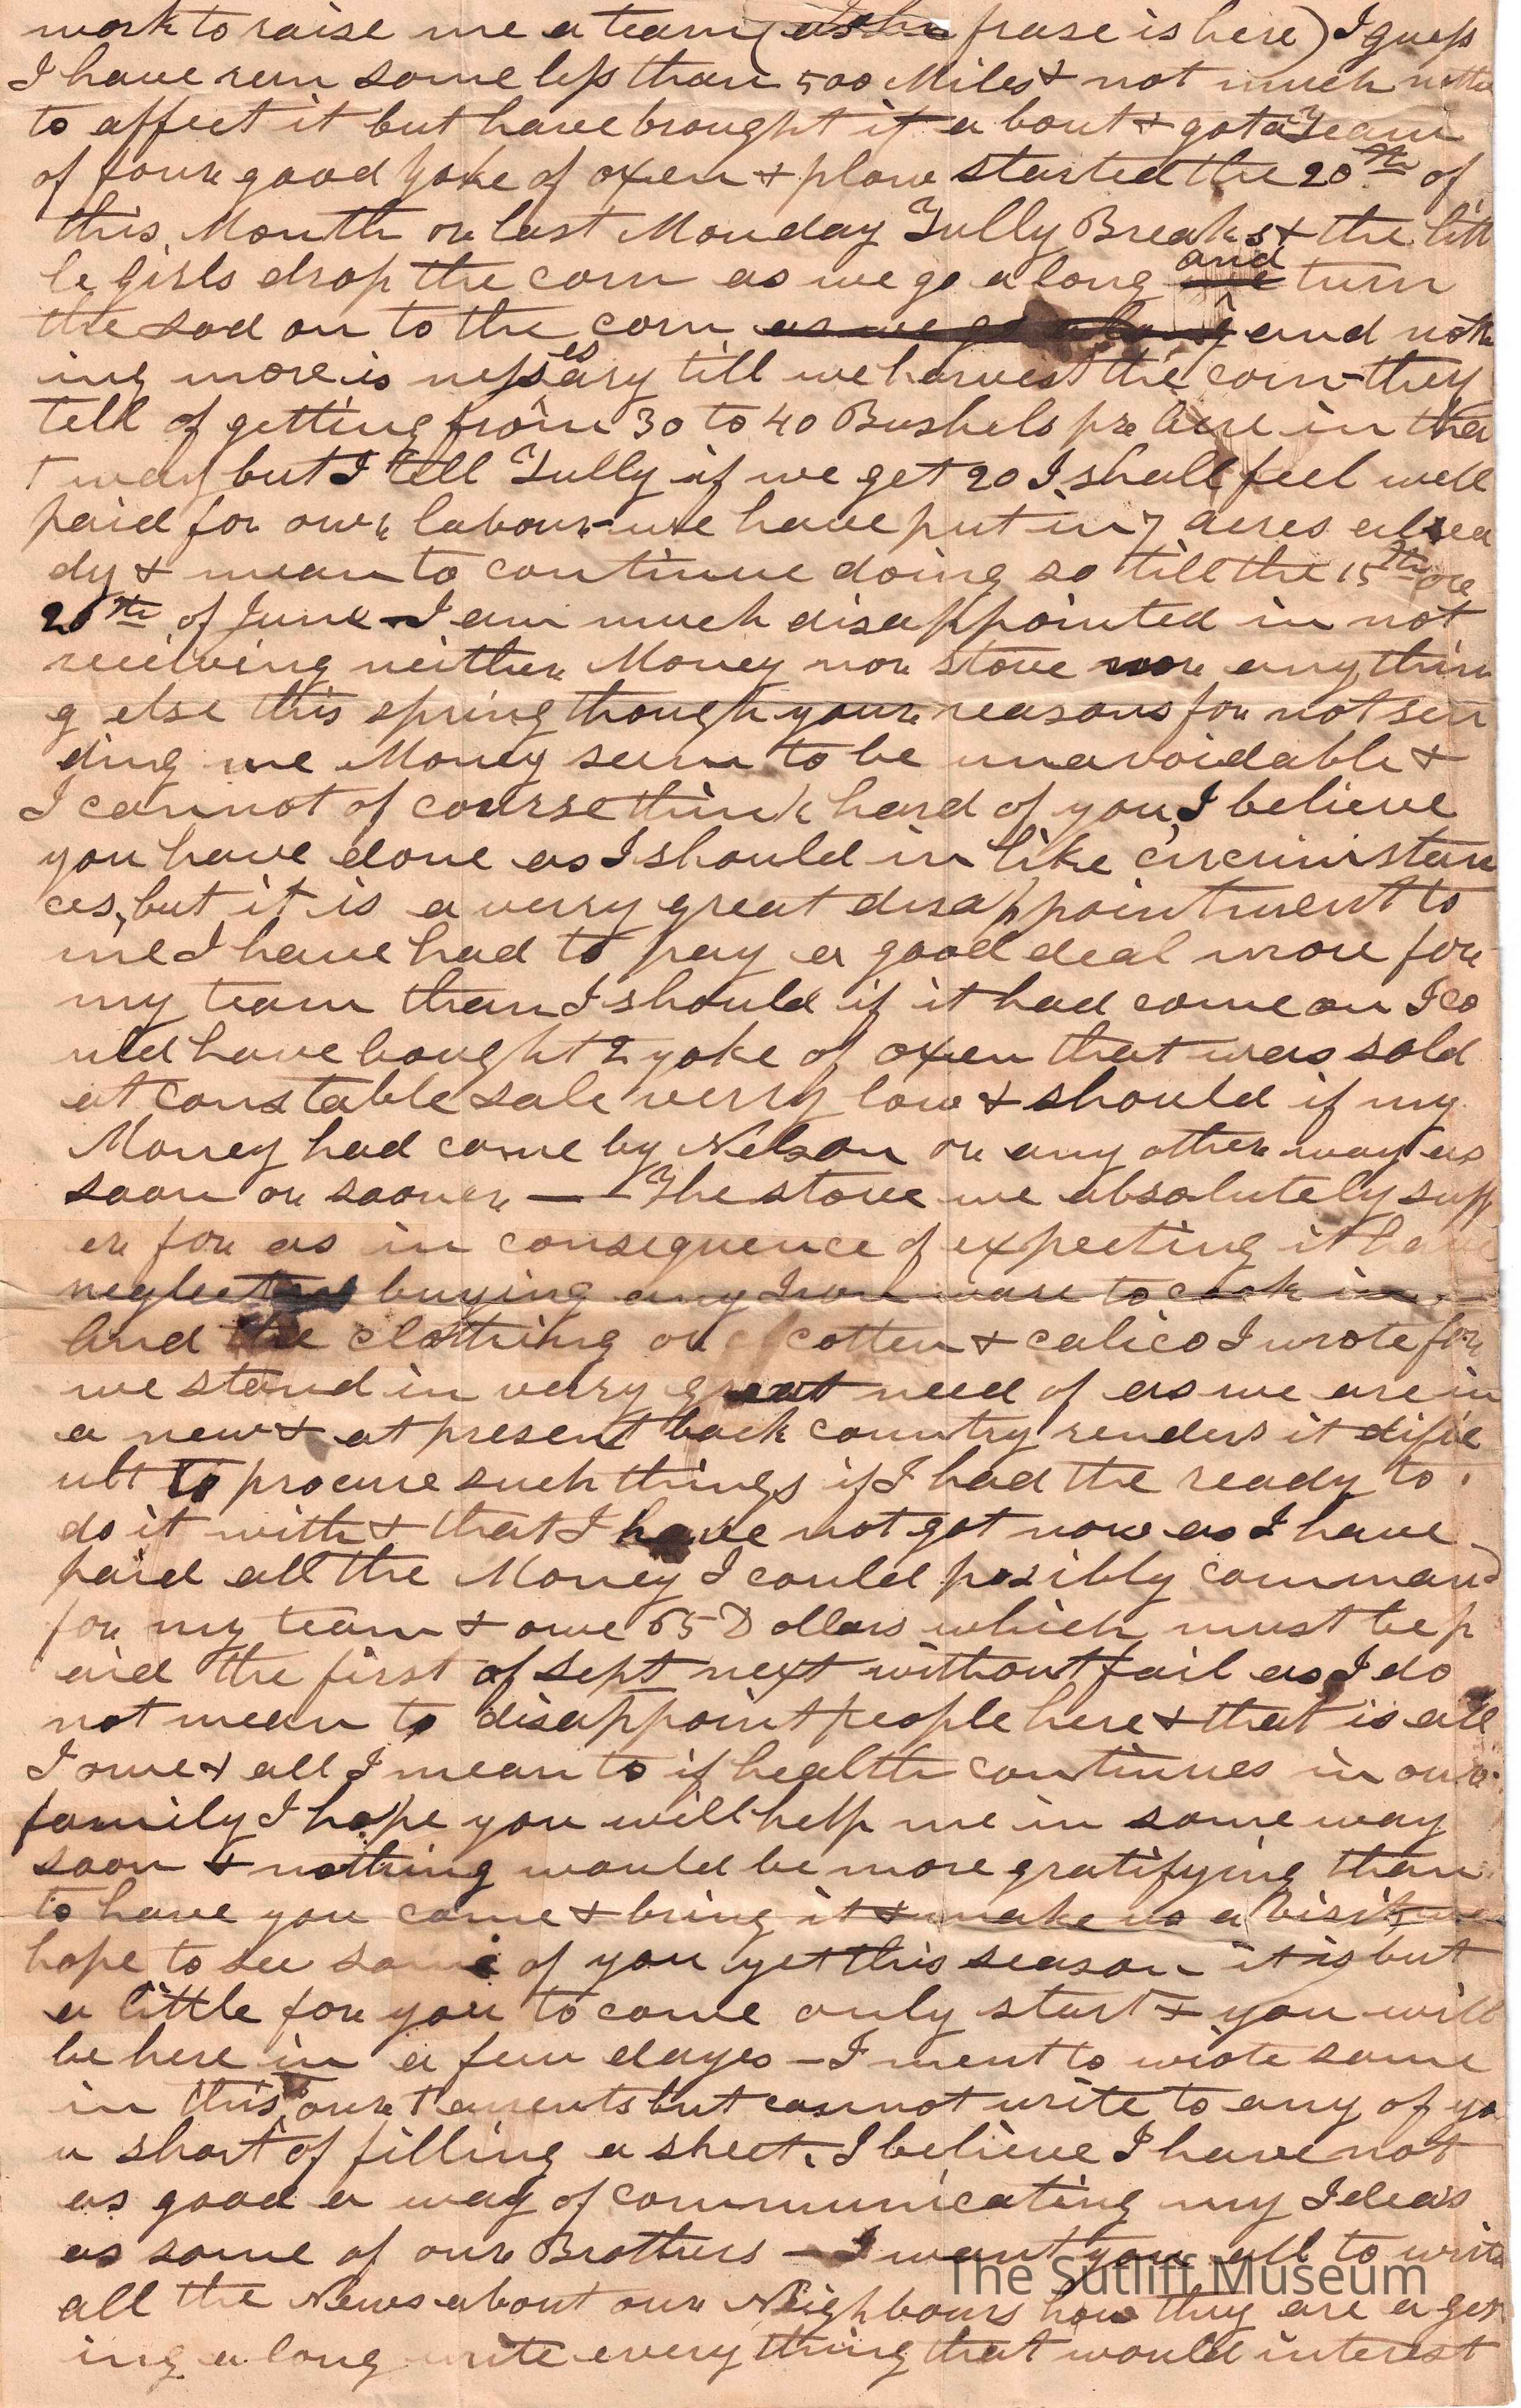 work to raise me a team (as the frase is here) I guess
I have run some less than 500 Miles & not much
to affect it but have brought it a bout & got a Team
of four good yoke of oxen & plow started the 20th of
this Month or last Monday Tully Breaks & the litt
le girls drop the corn as we go a long and turn
the sod on to the corn as we go along and noth
ing more is nessesary till we harvest the corn - they
tell of getting from 30 to 40 Bushels pr acre in tha
t way but I tell Tully if we get 20 I shall feel well
paid for our labour - we have put in 7 acres alrea
dy & mean to continue doing so till the 15th ore
20th of June - I am much disappointed in not
receiving neither Money nor stove nor anythin
g else this spring though your reasons for not sen
ding me Money seem to be unavoidable &
I cannot of course think hard of you I believe
you have done as I should in like circumstan
ces, but it is a verry great disappointment to
me I have had to pay a good deal more for
my team than I should if it had come on I co
uld have bought 2 yoke of oxen that was sold
at constable sale verry low & should if my
Money had come by Nelson or any other way as
soon or sooner — The stove we absolutely suff
er for as in consequence of expecting it have
neglected buying any Iron ware to cook in -
And the clothing or cotten & calico I wrote for
we stand in verry great need of as we are in
a new & at present back country renders it dific
ult to procure such things if I had the ready to
do it with & that I have not got now as I have
paid all the Money I could posibly command
for my team & owe 65 Dollars which must be p
aid the first of Sept next without fail as I do
not mean to disappoint people here & that is all
I owe & all I mean to if health continues in our
family I hope you will help me in some way
soon & nothing would be more gratifying than
to have you come & bring it & make us a visit we
hope to see some of you yet this season it is but
a little for you to come only start & you will
be here in a few dayes - I ment to wrote some
in this to our Parents but cannot write to any of yo
u short of filling a sheet. I believe I have not
as good a way of communicating my Ideas
as some of our Brothers - I want you all to write
all the News about our Neighbours how they are a get
ing a long write every thing that would interest
The Sutliff Museum